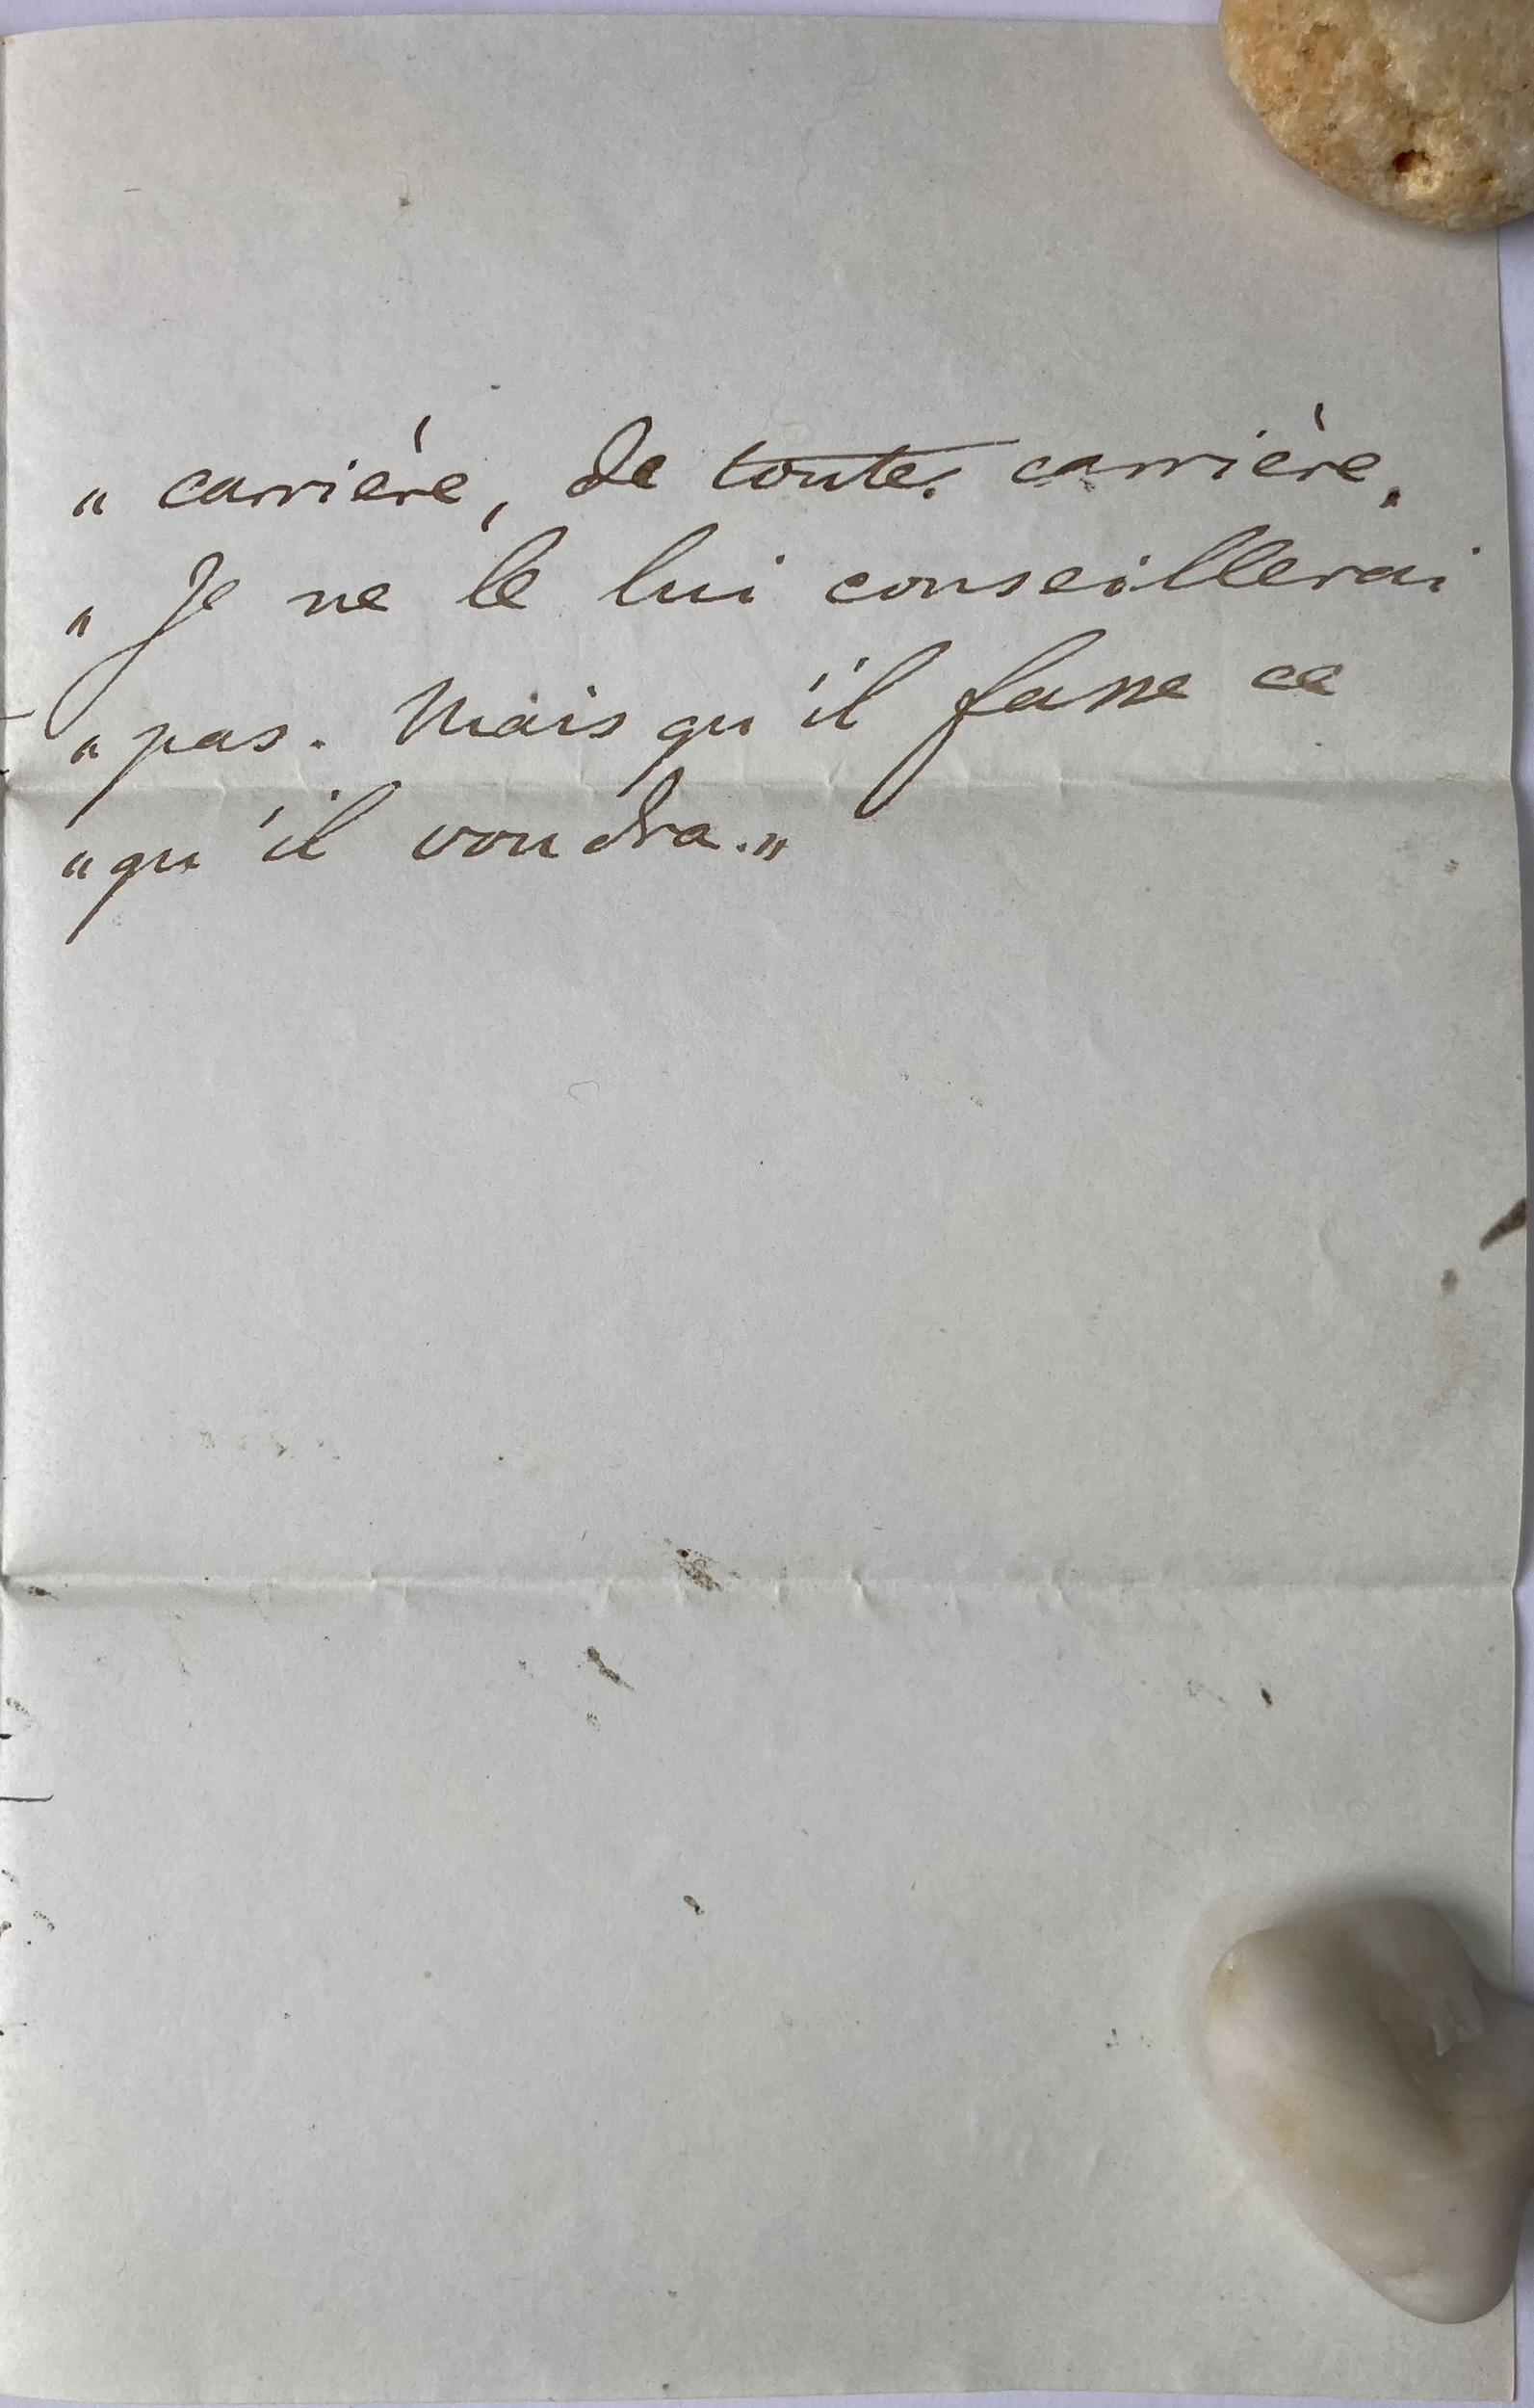 " carrière, de toute carrière.
" Je ne le lui conseillerai
" pas. Mais qu'il fasse ce
" qu'il voudra."